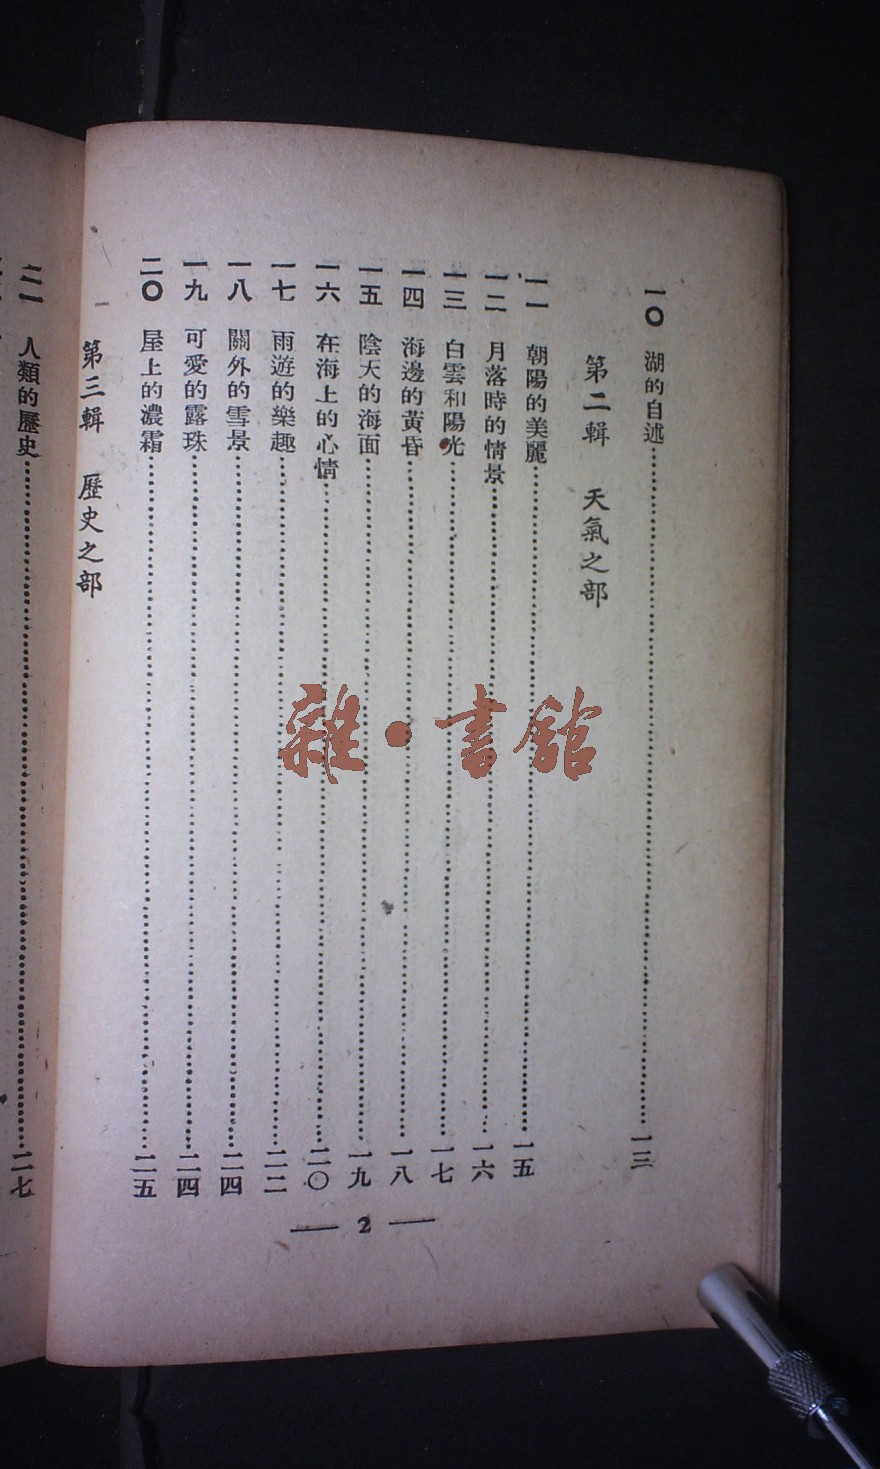 一〇 湖的自述……一三
第二輯 天氣之部
一一 朝陽的美麗……一五
一二 月落時的情景……一六
一三 白雲和陽光……一七
一四 海邊的黃昏……一八
一五 陰天的海面……一九
一六 在海上的心情……二〇
一七 雨遊的樂趣……二二
一八 關外的雪景……二四
一九 可愛的露珠……二四
二〇 屋上的濃霜……二五
第三輯 歷史之部
— 2 —
二一 人類的歷史……二七
雜·書館